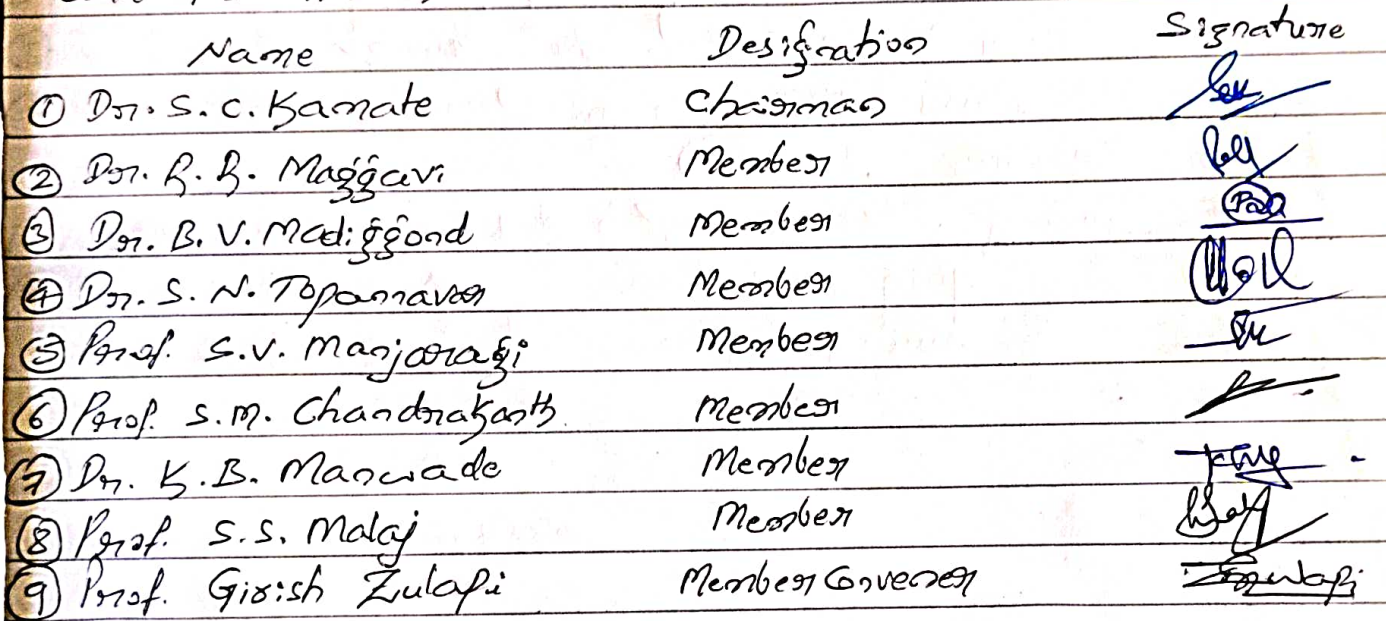 Name Designation Signature
① Dr. S. C. Kamate Chairman
② Dr. R. R. Maggavi Member
③ Dr. B. V. Madiggond Member
④ Dr. S. N. Topannavar Member
⑤ Prof. S.V. Manjaragi Member
⑥ Prof. S.M. Chandrakanth Member
⑦ Dr. K.B. Manwade Member
⑧ Prof. S.S. Malaj Member
⑨ Prof. Girish Zulapi Member Convener